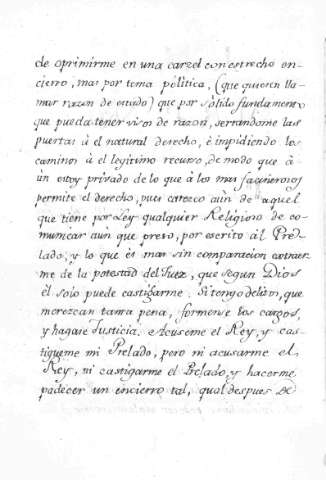 de oprimirme en una carzel con estrecho en-
cierro, mas por tema politica, (que quieren lla-
mar razon de estado) que por sólido fundamento
que pueda tener visos de razon, serrandome las
puertas à el natural derecho, è impidiendo los
caminos à el legitimo recurso, de modo que à-
ùn estoy privado de lo que à los mas facinerosos
permite el derecho, pues carezco aùn de aquel
que tiene por Ley qualquier Religioso de co-
municar aùn que preso, por escrito àl Pre-
lado, y lo que es mas sin comparacion extraer
me de la potestad del Juez, que segun Dios
èl solo puede castigarme. Si tengo delitos, que
merezcan tanta pena, formense los cargos,
y hagase Justicia. Acuseme el Rey, y cas-
tigueme mi Prelado, pero ni acusarme el
Rey, ni castigarme el Prelado, y hacerme
padecer un encierro tal, qual despues de